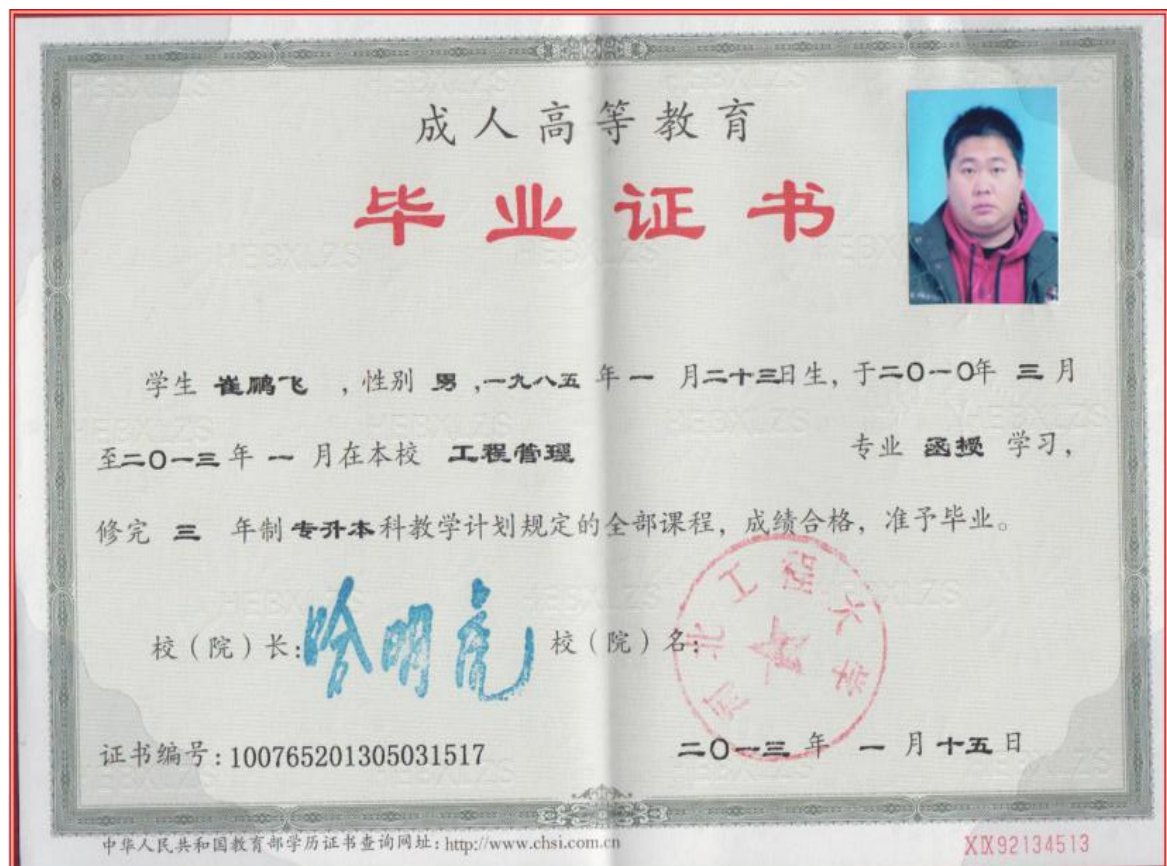 成人高等教育
毕业证书
学生 崔鹏飞 ，性别 男 ，一九八五 年 一 月二十三日生，于二〇一〇年 三 月
至二〇一三 年 一 月在本校 工程管理 专业 函授 学习，
修完 三 年制 专升本科教学计划规定的全部课程，成绩合格，准予毕业。
校（院）长：哈明虎 校（院）名：
河北工程大学
证书编号：100765201305031517
二〇一三 年 一 月十五日
中华人民共和国教育部学历证书查询网址：http://www.chsi.com.cn
XIX92134513
HEBXLZS
HEBXLZS
HEBXLZS
HEBXLZS